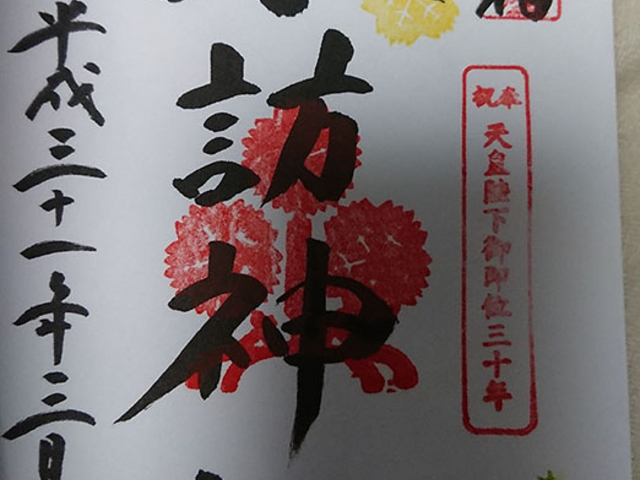 奉祝
天皇陛下御即位三十年
訪神
平成三十一年三月